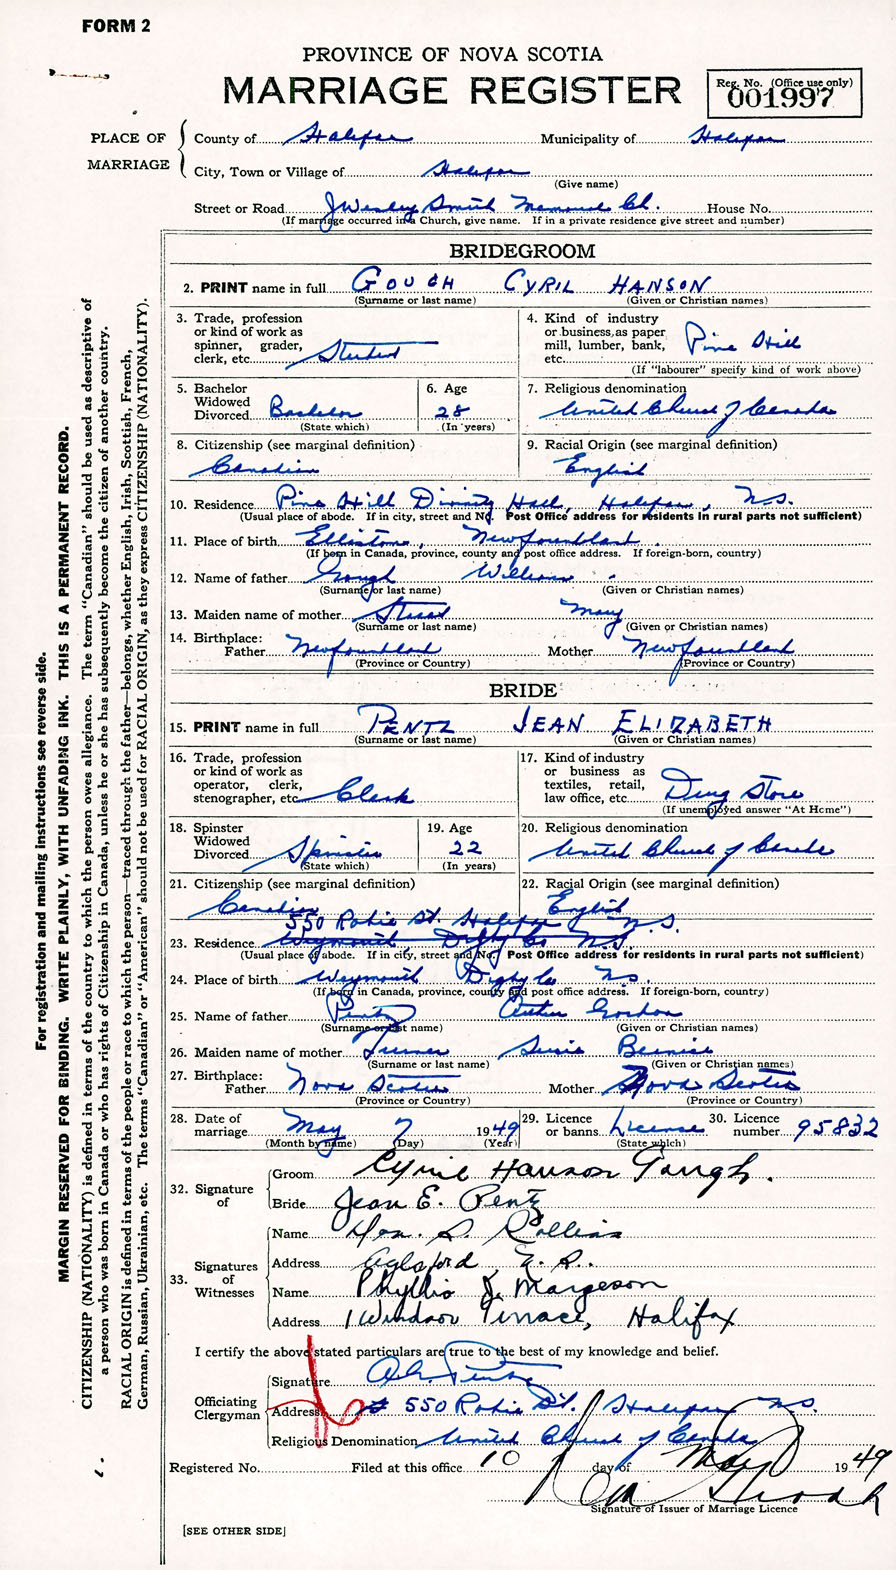 FORM 2
PROVINCE OF NOVA SCOTIA
MARRIAGE REGISTER
Reg. No. (Office use only)
001997
PLACE OF MARRIAGE
County of Halifax Municipality of Halifax
City, Town or Village of Halifax
(Give name)
Street or Road J Wesley Smith Memorial Ch. House No.
(If marriage occurred in a Church, give name. If in a private residence give street and number)
BRIDEGROOM
2. PRINT name in full GOUGH CYRIL HANSON
(Surname or last name) (Given or Christian names)
3. Trade, profession or kind of work as spinner, grader, clerk, etc. Student
4. Kind of industry or business, as paper mill, lumber, bank, etc. Pine Hill
(If "labourer" specify kind of work above)
5. Bachelor Widowed Divorced Bachelor
(State which)
6. Age 28
(In years)
7. Religious denomination
United Church of Canada
8. Citizenship (see marginal definition)
Canadian
9. Racial Origin (see marginal definition)
English
10. Residence Pine Hill Divinity Hall, Halifax, N.S.
(Usual place of abode. If in city, street and No. Post Office address for residents in rural parts not sufficient)
11. Place of birth Elliston, Newfoundland
(If born in Canada, province, county and post office address. If foreign-born, country)
12. Name of father Gough William
(Surname or last name) (Given or Christian names)
13. Maiden name of mother Mary
(Surname or last name) (Given or Christian names)
14. Birthplace:
Father Newfoundland Mother Newfoundland
(Province or Country) (Province or Country)
BRIDE
15. PRINT name in full PENTZ JEAN ELIZABETH
(Surname or last name) (Given or Christian names)
16. Trade, profession or kind of work as operator, clerk, stenographer, etc. Clerk
17. Kind of industry or business as textiles, retail, law office, etc. Drug Store
(If unemployed answer "At Home")
18. Spinster Widowed Divorced Spinster
(State which)
19. Age 22
(In years)
20. Religious denomination
United Church of Canada
21. Citizenship (see marginal definition)
Canadian
22. Racial Origin (see marginal definition)
English
550 Robie St. Halifax N.S.
23. Residence Weymouth Digby Co N.S.
(Usual place of abode. If in city, street and No. Post Office address for residents in rural parts not sufficient)
24. Place of birth Weymouth Digby Co NS
(If born in Canada, province, county and post office address. If foreign-born, country)
25. Name of father Pentz Arthur Gordon
(Surname or last name) (Given or Christian names)
26. Maiden name of mother Turner Susie Bernice
(Surname or last name) (Given or Christian names)
27. Birthplace:
Father Nova Scotia Mother Nova Scotia
(Province or Country) (Province or Country)
28. Date of marriage May 7 1949
(Month by name) (Day) (Year)
29. Licence or banns License
(State which)
30. Licence number 95832
32. Signature of
Groom Cyril Hanson Gough.
Bride Jean E. Pentz
33. Signatures of Witnesses
Name S. Rollins
Address Aylesford,
Name Phyllis J. Margeson
Address 1 Windsor Terrace, Halifax
I certify the above stated particulars are true to the best of my knowledge and belief.
Officiating Clergyman
Signature Pentz
Address 550 Robie St. Halifax N.S.
Religious Denomination United Church of Canada
Registered No. Filed at this office 10 day of May 1949
Signature of Issuer of Marriage Licence
[SEE OTHER SIDE]
For registration and mailing instructions see reverse side.
MARGIN RESERVED FOR BINDING. WRITE PLAINLY, WITH UNFADING INK. THIS IS A PERMANENT RECORD.
CITIZENSHIP (NATIONALITY) is defined in terms of the country to which the person owes allegiance. The term "Canadian" should be used as descriptive of
a person who was born in Canada or who has rights of Citizenship in Canada, unless he or she has subsequently become the citizen of another country.
RACIAL ORIGIN is defined in terms of the people or race to which the person—traced through the father—belongs, whether English, Irish, Scottish, French,
German, Russian, Ukrainian, etc. The terms "Canadian" or "American" should not be used for RACIAL ORIGIN, as they express CITIZENSHIP (NATIONALITY).